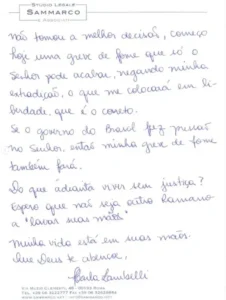 STUDIO LEGALE
SAMMARCO
não tomou a melhor decisão, começo
hoje uma greve de fome que só o
Senhor pode acabar, negando minha
extradição, o que me colocará em li-
berdade, que é o correto.
Se o governo do Brasil faz pressão
no Senhor, então minha greve de fome
também fará.
Do que adianta viver sem justiça?
Espero que não seja outro Romano
a "lavar suas mãos"
Minha vida está em suas mãos.
Que Deus te abençoe,
Carla Zambelli